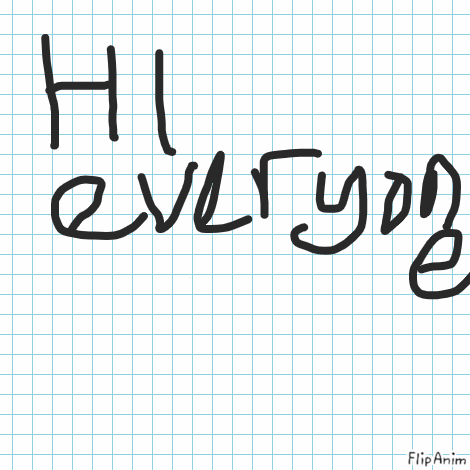 HI
everyone
FlipAnim